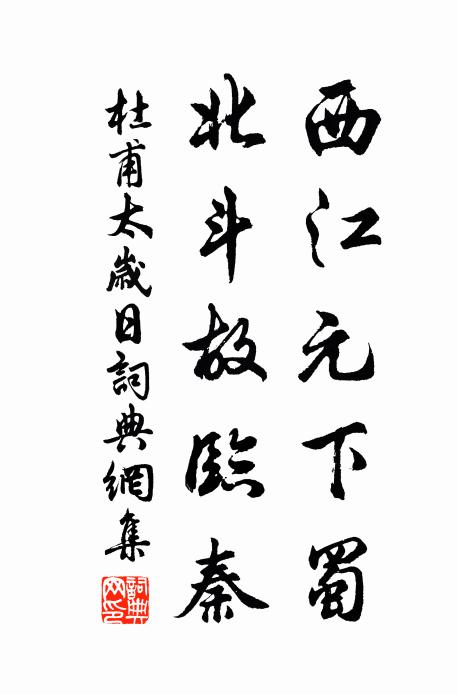 西江元下蜀
北斗故臨秦
杜甫太歲日詞典網集
詞典
網印